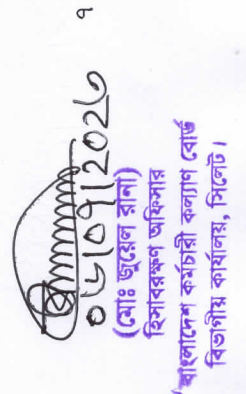 ৭
(মোঃ জুয়েল রানা)
হিসাবরক্ষণ অফিসার
বাংলাদেশ কর্মচারী কল্যাণ বোর্ড
বিভাগীয় কার্যালয়, সিলেট।